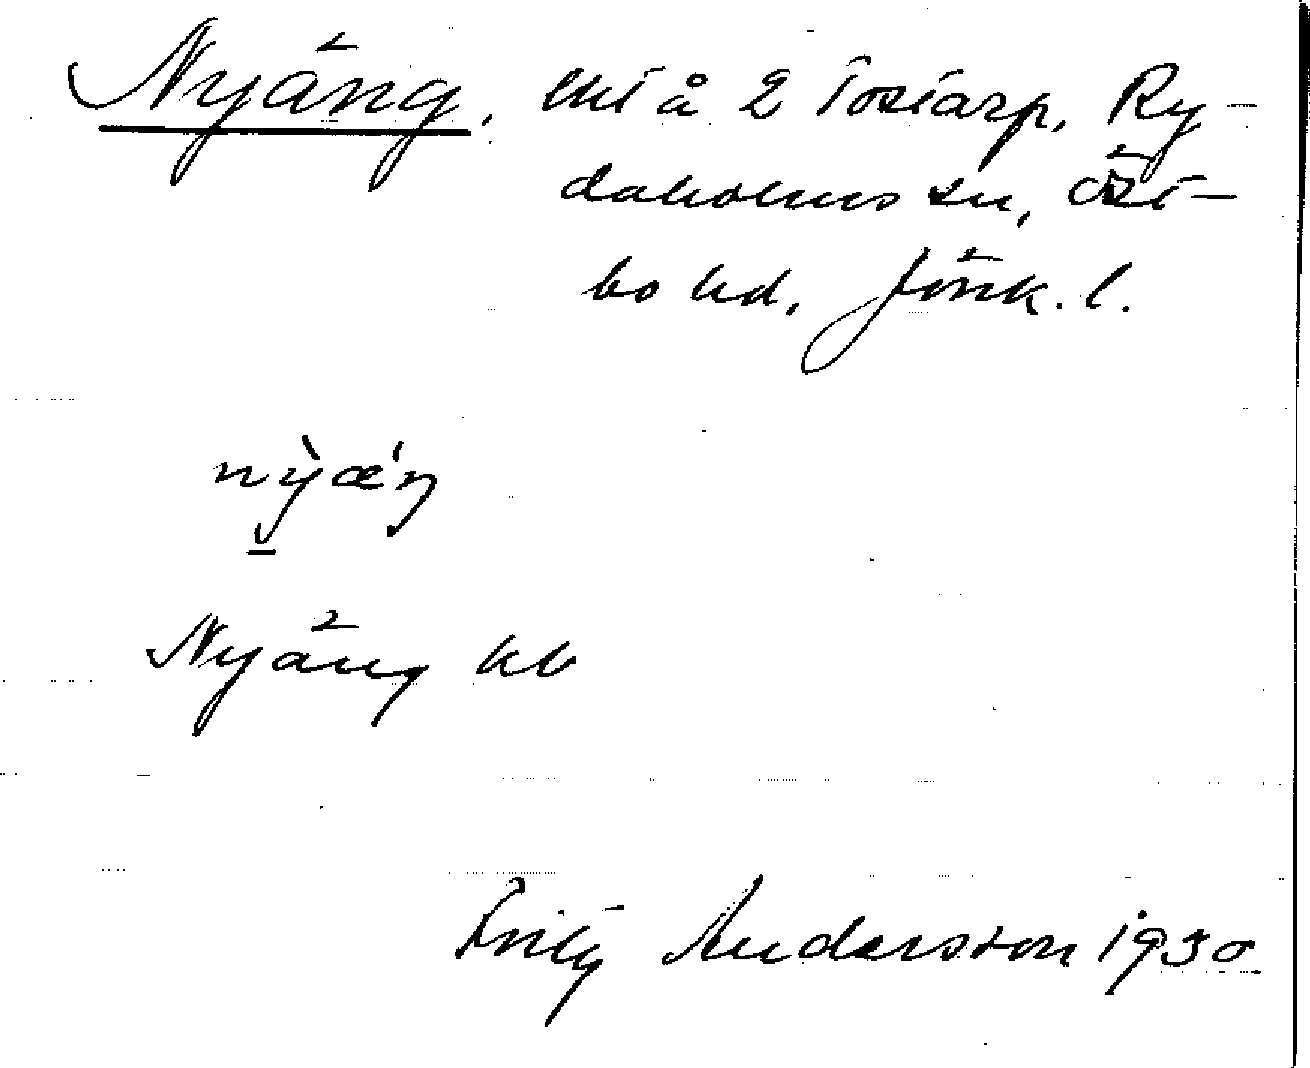 Nyäng, lht å 2 Tostarp, Ry-
daholms sn, Öst-
bo hd, Jönk. l.
nỳæ´ŋ
Nyäng kb
Fritz Andersson 1930